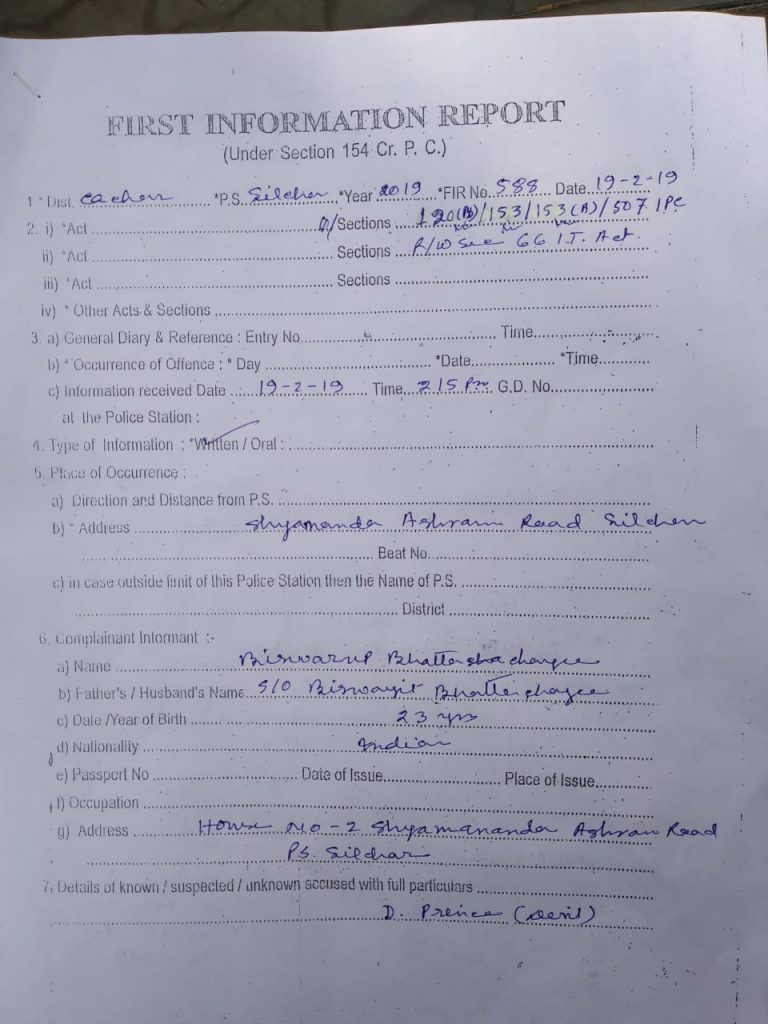 FIRST INFORMATION REPORT
(Under Section 154 Cr. P. C.)
1 * Dist. Cachar *P.S. Silchar *Year 2019 *FIR No. 588 Date 19-2-19
2. i) *Act U/Sections 120(B)/153/153(A)/507 IPC
ii) *Act Sections R/W Sec 66 I.T. Act.
iii) *Act Sections
iv) * Other Acts & Sections
3. a) General Diary & Reference : Entry No. Time
b) * Occurrence of Offence : * Day *Date *Time
c) Information received Date : 19-2-19 Time 2 15 Pm G.D. No.
at the Police Station :
4. Type of Information : *Written / Oral :
5. Place of Occurrence :
a) Direction and Distance from P.S.
b) * Address Shyamananda Ashram Road Silchar
Beat No.
c) in case outside limit of this Police Station then the Name of P.S.
District
6. Complainant Informant :-
a) Name Biswarup Bhattacharjee
b) Father's / Husband's Name S/O Biswajit Bhattacharjee
c) Date /Year of Birth 23 yrs
d) Nationality Indian
e) Passport No Date of Issue Place of Issue
f) Occupation
g) Address House No - 2 Shyamananda Ashram Road
PS. Silchar
7. Details of known / suspected / unknown accused with full particulars
D. Prince